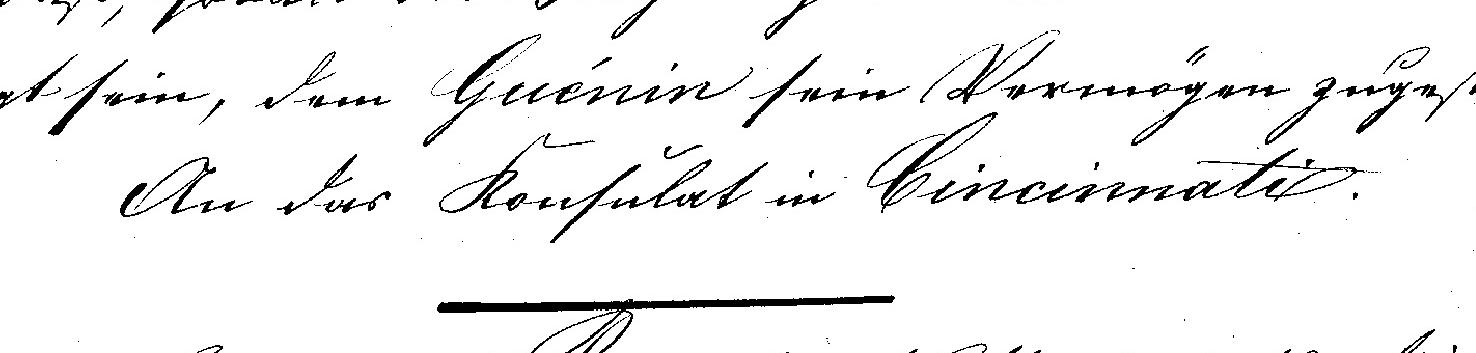 gt sein, dem Guénin sein Vermögen zugest
An das Konsulat in Cincinnati.